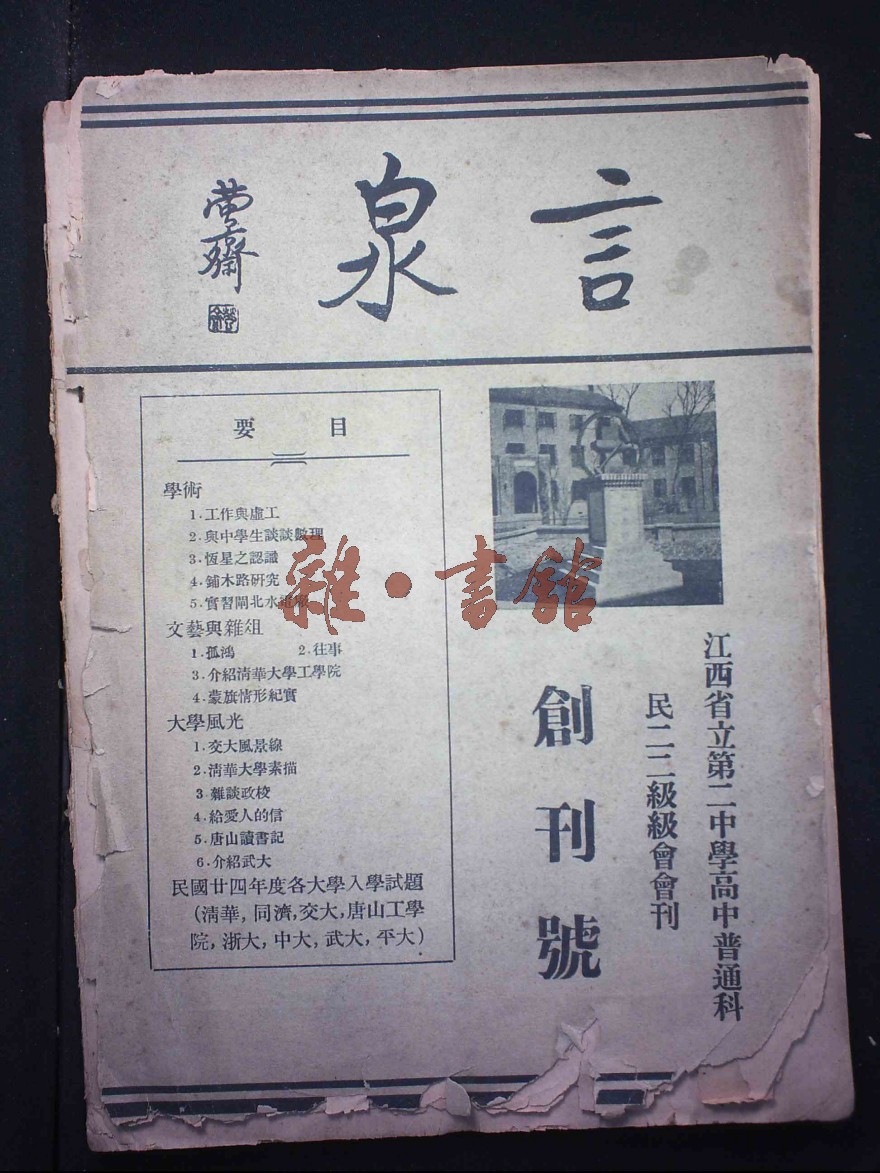 言泉
江西省立第二中學高中普通科
民二二級級會會刊
創刊號
要目
學術
1.工作與虛工
2.與中學生談談數理
3.恆星之認識
4.鋪木路研究
5.實習閘北水電廠
文藝與雜俎
1.孤鴻 2.往事
3.介紹清華大學工學院
4.蒙旗情形紀實
大學風光
1.交大風景線
2.清華大學素描
3.雜談政校
4.給愛人的信
5.唐山讀書記
6.介紹武大
民國廿四年度各大學入學試題
(清華,同濟,交大,唐山工學
院,浙大,中大,武大,平大)
雜·書館